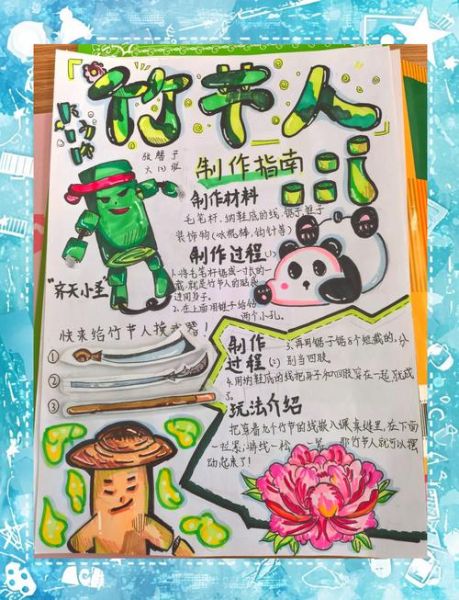 「竹节人」
制作指南
制作材料
毛笔杆、纳鞋底的线、锯子、钳子
装饰物(冰棍棒、钩针等)
制作过程(1)
1.将毛笔杆锯成一寸长的一
截,就是竹节人的脑袋
连同身子。
2.在上面用钳子给钻
两个小孔。
"齐天小圣"
快来给竹节人换武器!
①
②
③
制作
过程(2)
3.再用锯子锯8个短截的,分
别当四肢。
4.用纳鞋底的线把身子和四肢穿在一起就成
了。
玩法介绍
把穿着九个竹节的线嵌入课桌缝里,在下面
一拉紧,
那竹节人就可以摆
动起来了!